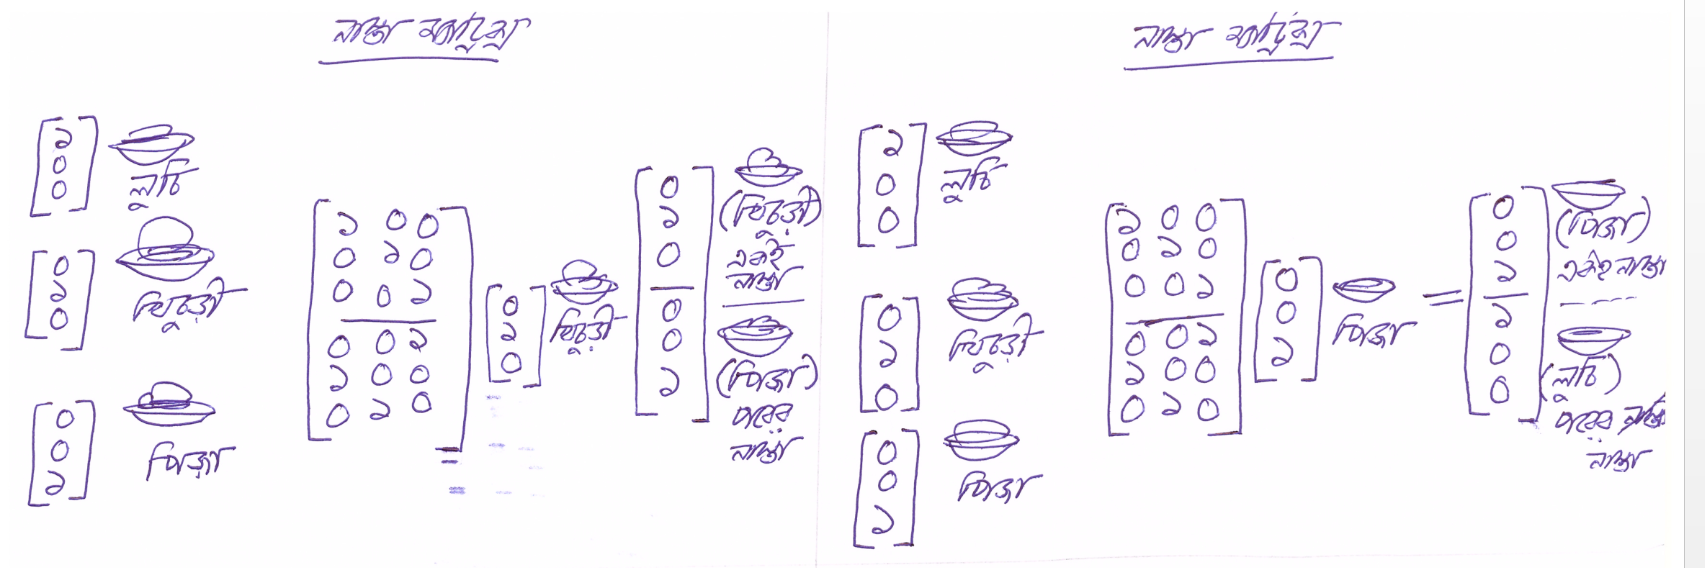 নাস্তা ম্যাট্রিক্স
[১
০
০]
লুচি
[০
১
০]
খিচুড়ী
[০
০
১]
পিজা
[১ ০ ০
০ ১ ০
০ ০ ১
০ ০ ১
১ ০ ০
০ ১ ০]
[০
১
০]
খিচুড়ী
=
[০
১
০
০
০
১]
(খিচুড়ী)
একই
নাস্তা
(পিজা)
পরের
নাস্তা
নাস্তা ম্যাট্রিক্স
[১
০
০]
লুচি
[০
১
০]
খিচুড়ী
[০
০
১]
পিজা
[১ ০ ০
০ ১ ০
০ ০ ১
০ ০ ১
১ ০ ০
০ ১ ০]
[০
০
১]
পিজা
=
[০
০
১
১
০
০]
(পিজা)
একই নাস্তা
(লুচি)
পরের
নাস্তা